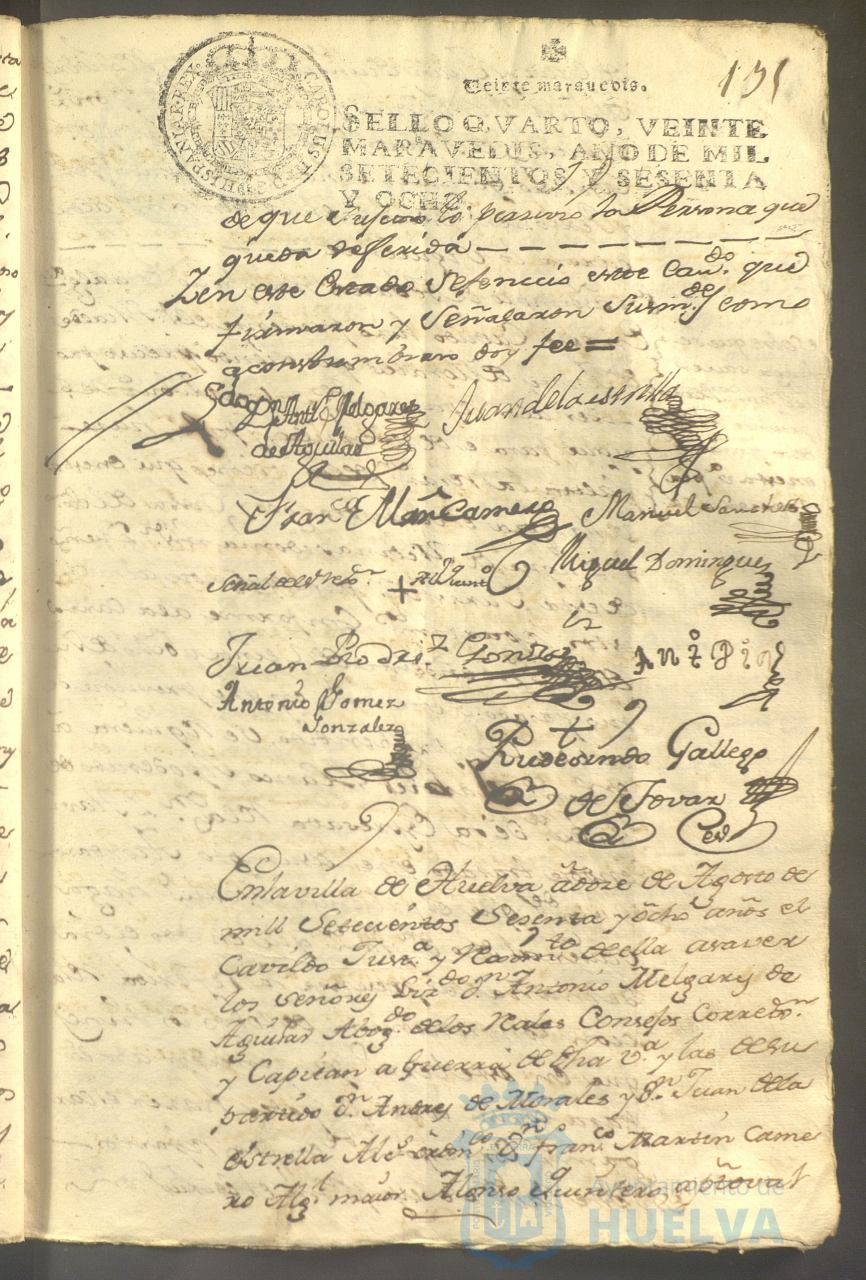 Veinte maravedis.
SELLO QVARTO, VEINTE
MARAVEDIS, AÑO DE MIL
SETECIENTOS Y SESENTA
Y OCHO.
CAROLUS HISPANIAR REX
de que la Persona que
queda referida
en este Estado se feneccio este Cavdo. que
firmaron y Señalaron Susmrdes como
acostumbraro doy fee =
Ldo Dn Anto Melgarez
de Aguilar
Juan de la estrella
Franco Marn Camero
Manuel Sanchez
Miguel Domingues
Señal de el +
Juan Rodriz Gonzlez
Anto Pin
Antonio Gomez
Gonzalez
Rudesindo Gallego
de Tovar
En la villa de Huelva a doze de Agosto de
mill Setecientos Sesenta y ocho años el
Cavildo Justa y Rexmto de ella a saver
los señores Lizdo dn Antonio Melgarez de
Aguilar Abogdo de los Rales Consejos Corredr
y Capitan a Guerra de dha Va y las de su
partido dn Andres de Morales y dn Juan de la
estrella Ales ordinos Dn franco Martin Came
ro Algl maior Alonso quintero
Ayuntamiento de
HUELVA